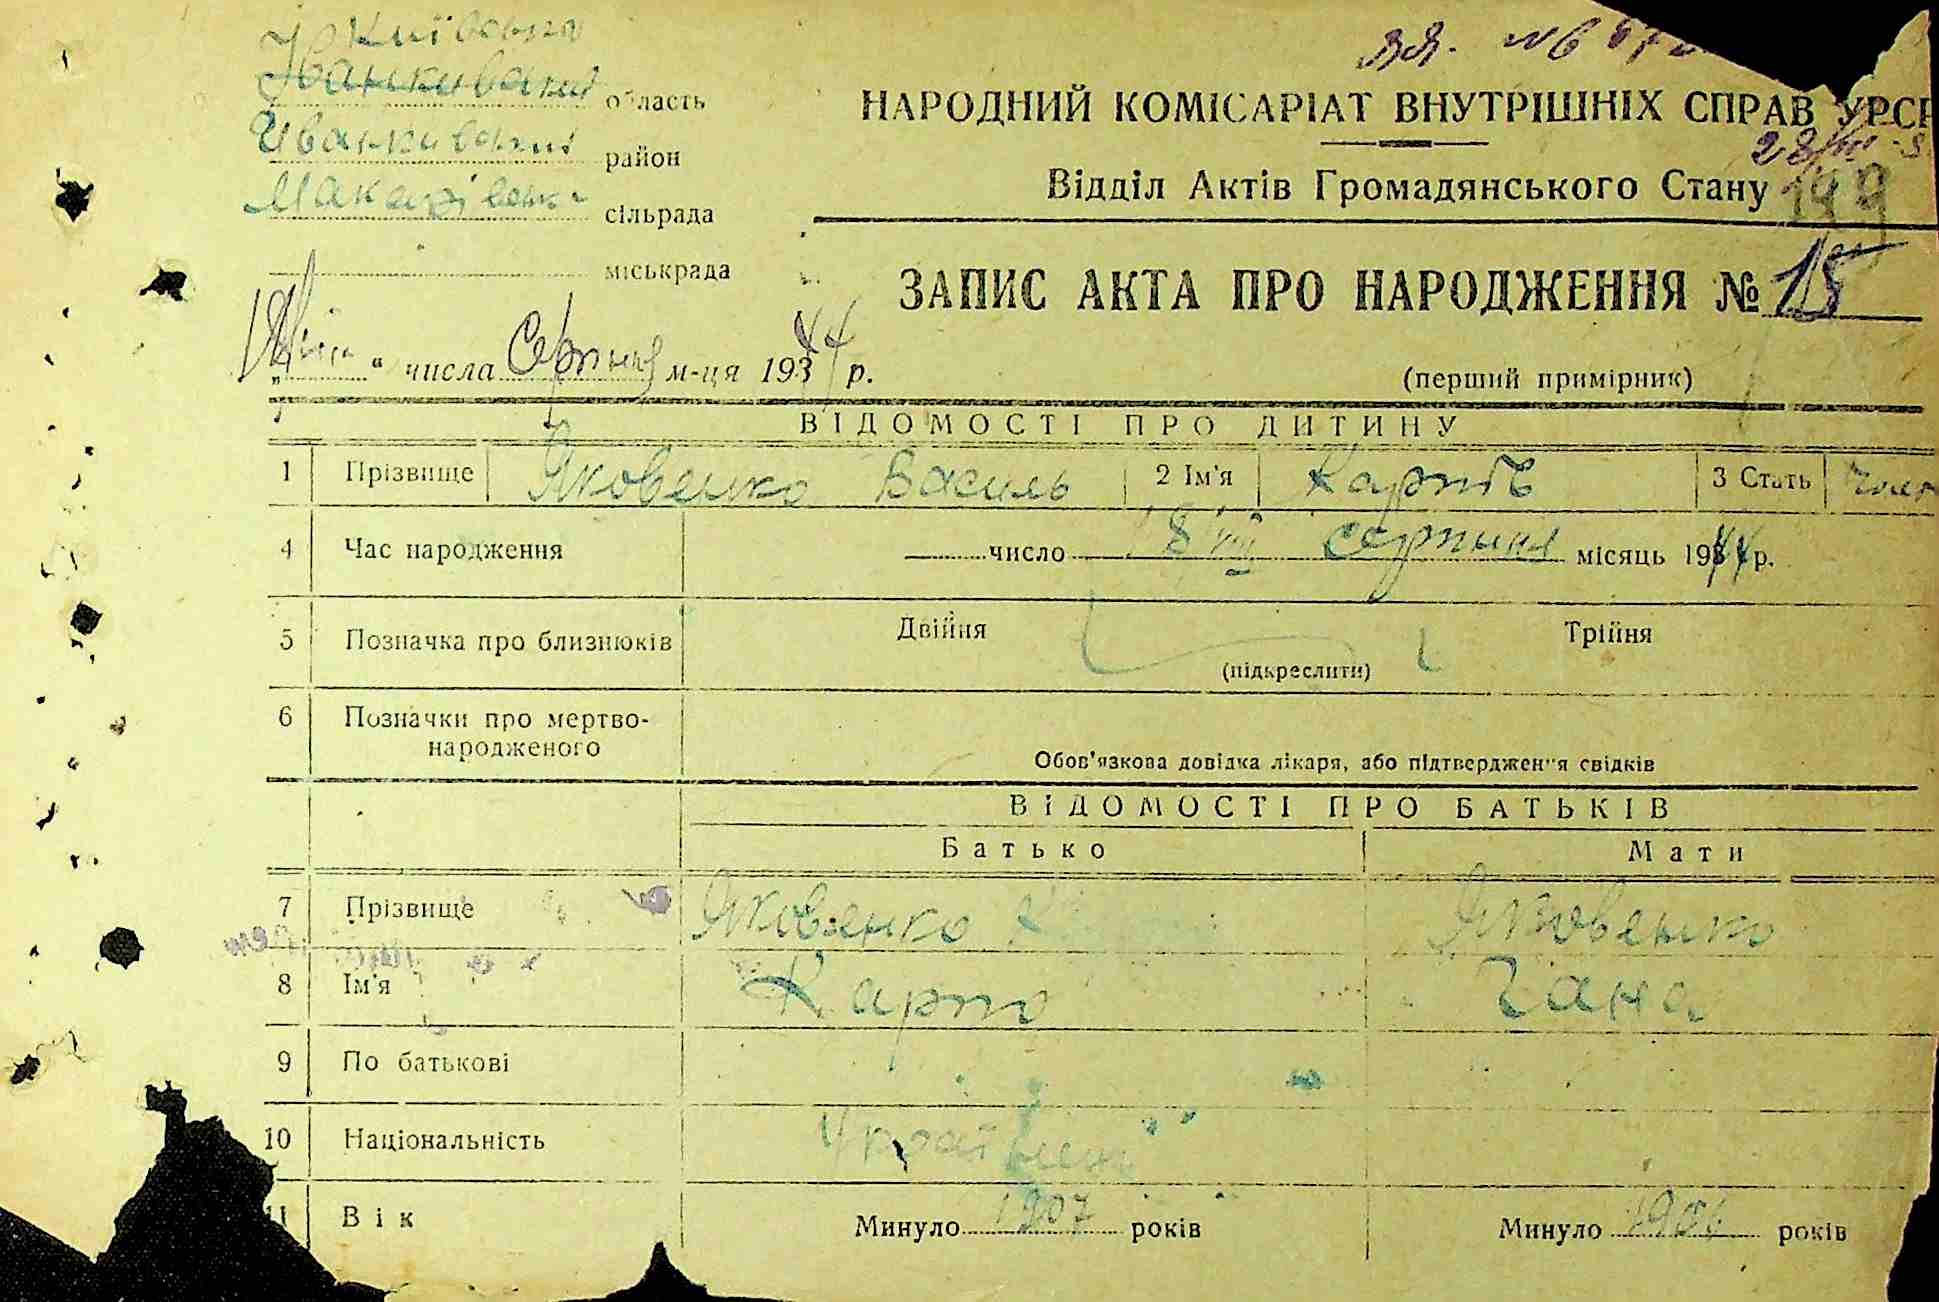 Київська
область
Иванкивский район
Макарівська сільрада
міськрада
НАРОДНИЙ КОМІСАРІАТ ВНУТРІШНІХ СПРАВ УРСР
Відділ Актів Громадянського Стану
199
ЗАПИС АКТА ПРО НАРОДЖЕННЯ № 15
„ “ числа Серпня м-ця 1944 р.
(перший примірник)
ВІДОМОСТІ ПРО ДИТИНУ
1 Прізвище Яковенко Василь 2 Ім'я Карпів 3 Стать Чол
4 Час народження число 8 VIII серпня місяць 1944 р.
5 Позначка про близнюків Двійня Трійня
(підкреслити)
6 Позначки про мертво-
народженого
Обов'язкова довідка лікаря, або підтвердження свідків
ВІДОМОСТІ ПРО БАТЬКІВ
Батько Мати
7 Прізвище Яковенко Яковенко
8 Ім'я Карпо Гана
9 По батькові
10 Національність Українці
11 Вік Минуло 1907 років Минуло років